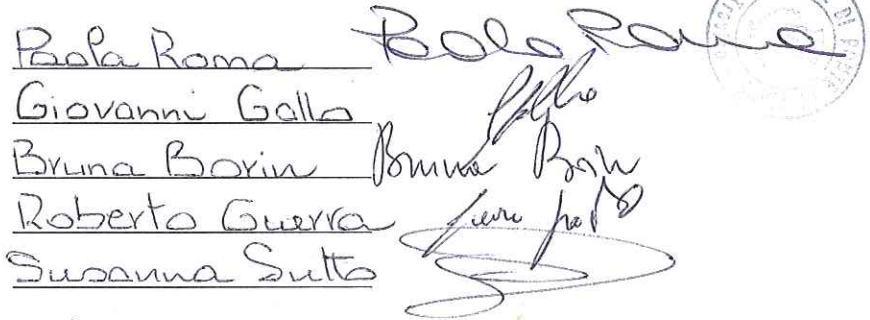 Paola Roma Paola Roma
Giovanni Gallo
Bruna Borin Bruna Borin
Roberto Guerra
Susanna Sutto